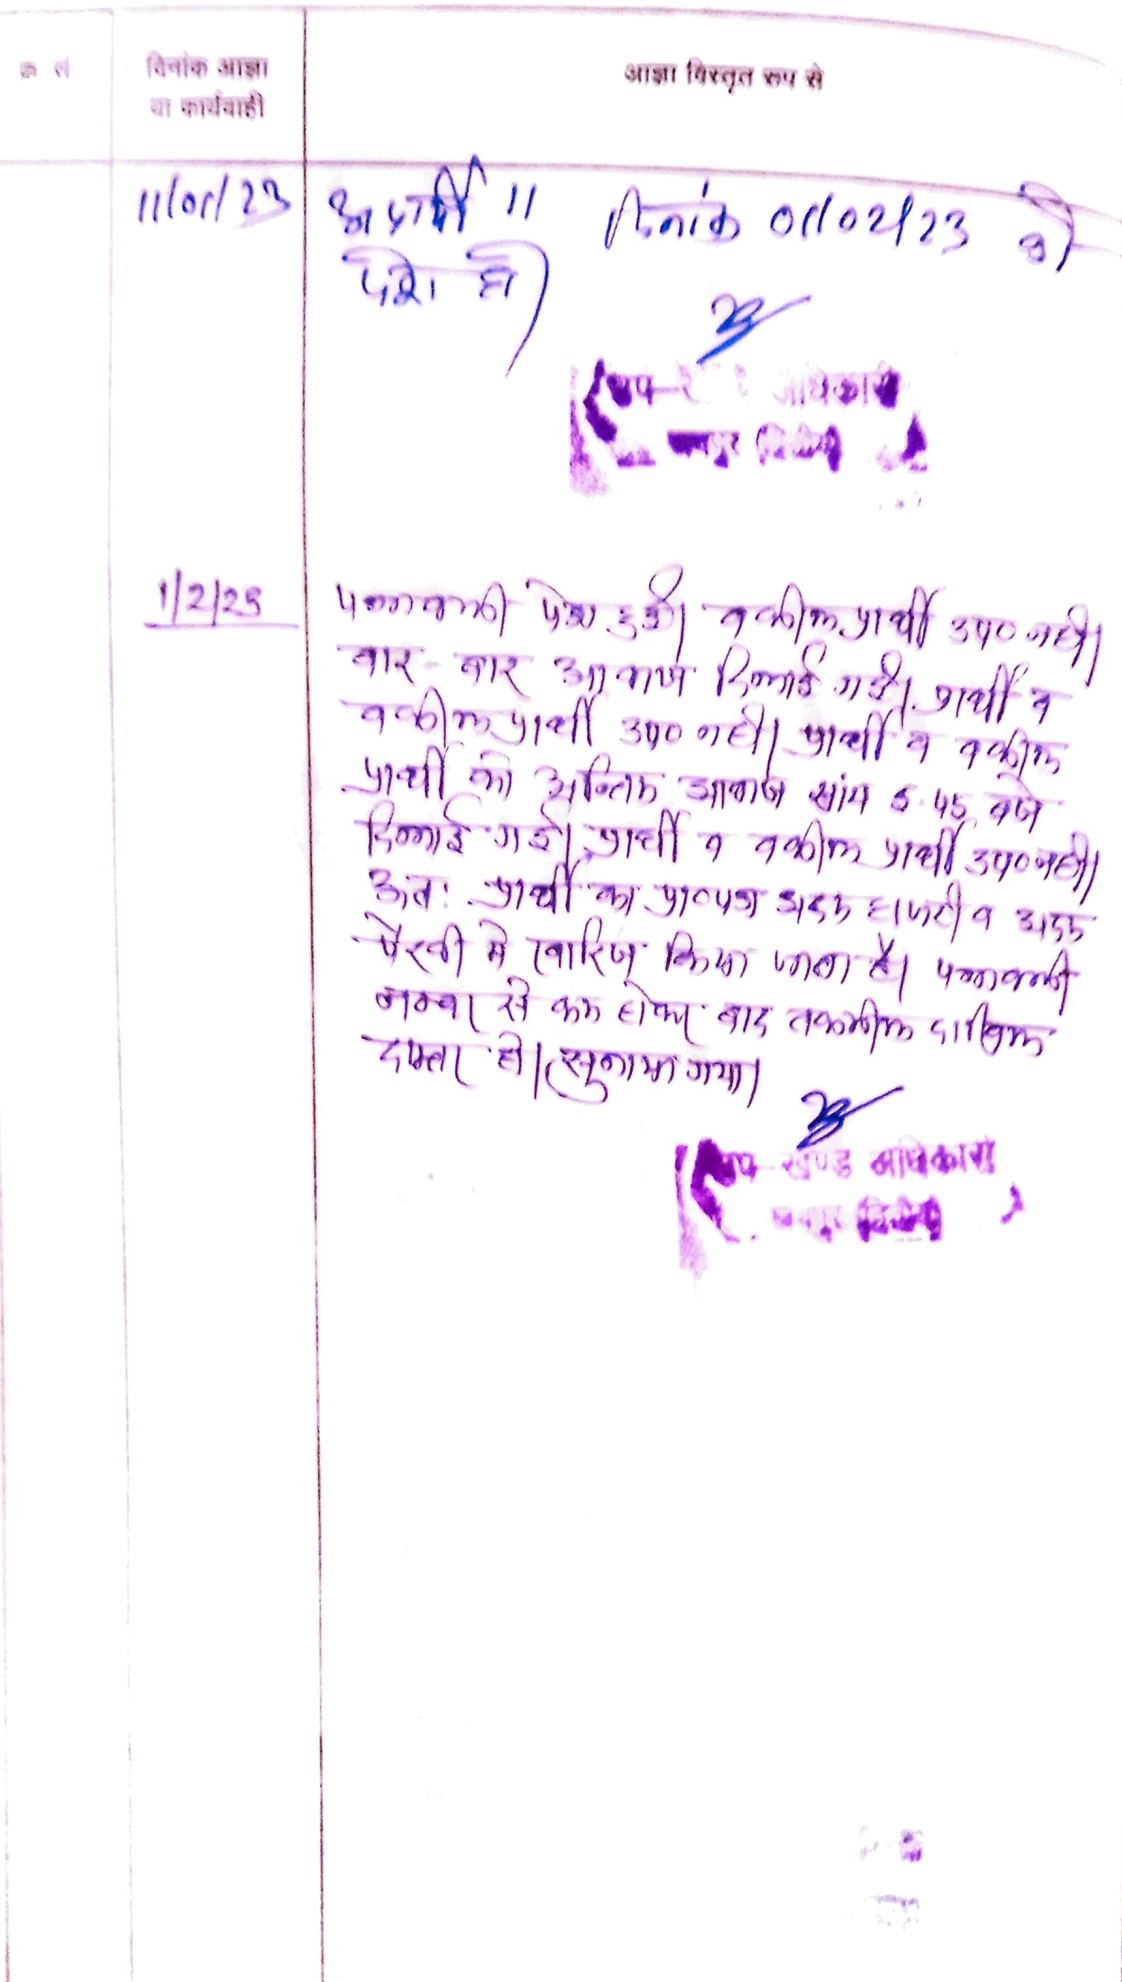 क्र सं
दिनांक आज्ञा
या कार्यवाही
आज्ञा विस्तृत रूप से
11/01/23 11 दिनांक 01/02/23 को
पेश हो
उप अधिकारी
1/2/23
पत्रावली पेश हुई। वकील प्रार्थी उप० नही।
बार-बार आवाज दिलाई गई। प्रार्थी व
वकील प्रार्थी उप० नही। प्रार्थी व वकील
प्रार्थी को अन्तिम आवाज सांय 5.45 बजे
दिलाई गई। प्रार्थी व वकील प्रार्थी उप० नही।
अतः प्रार्थी का प्रा०पत्र अदम हाजरी व अदम
पैरवी मे खारिज किया जाता है। पत्रावली
नम्बर से कम होकर बाद तकमील दाखिल
दफ्तर हो। सुनाया गया।
उप-खण्ड अधिकारी